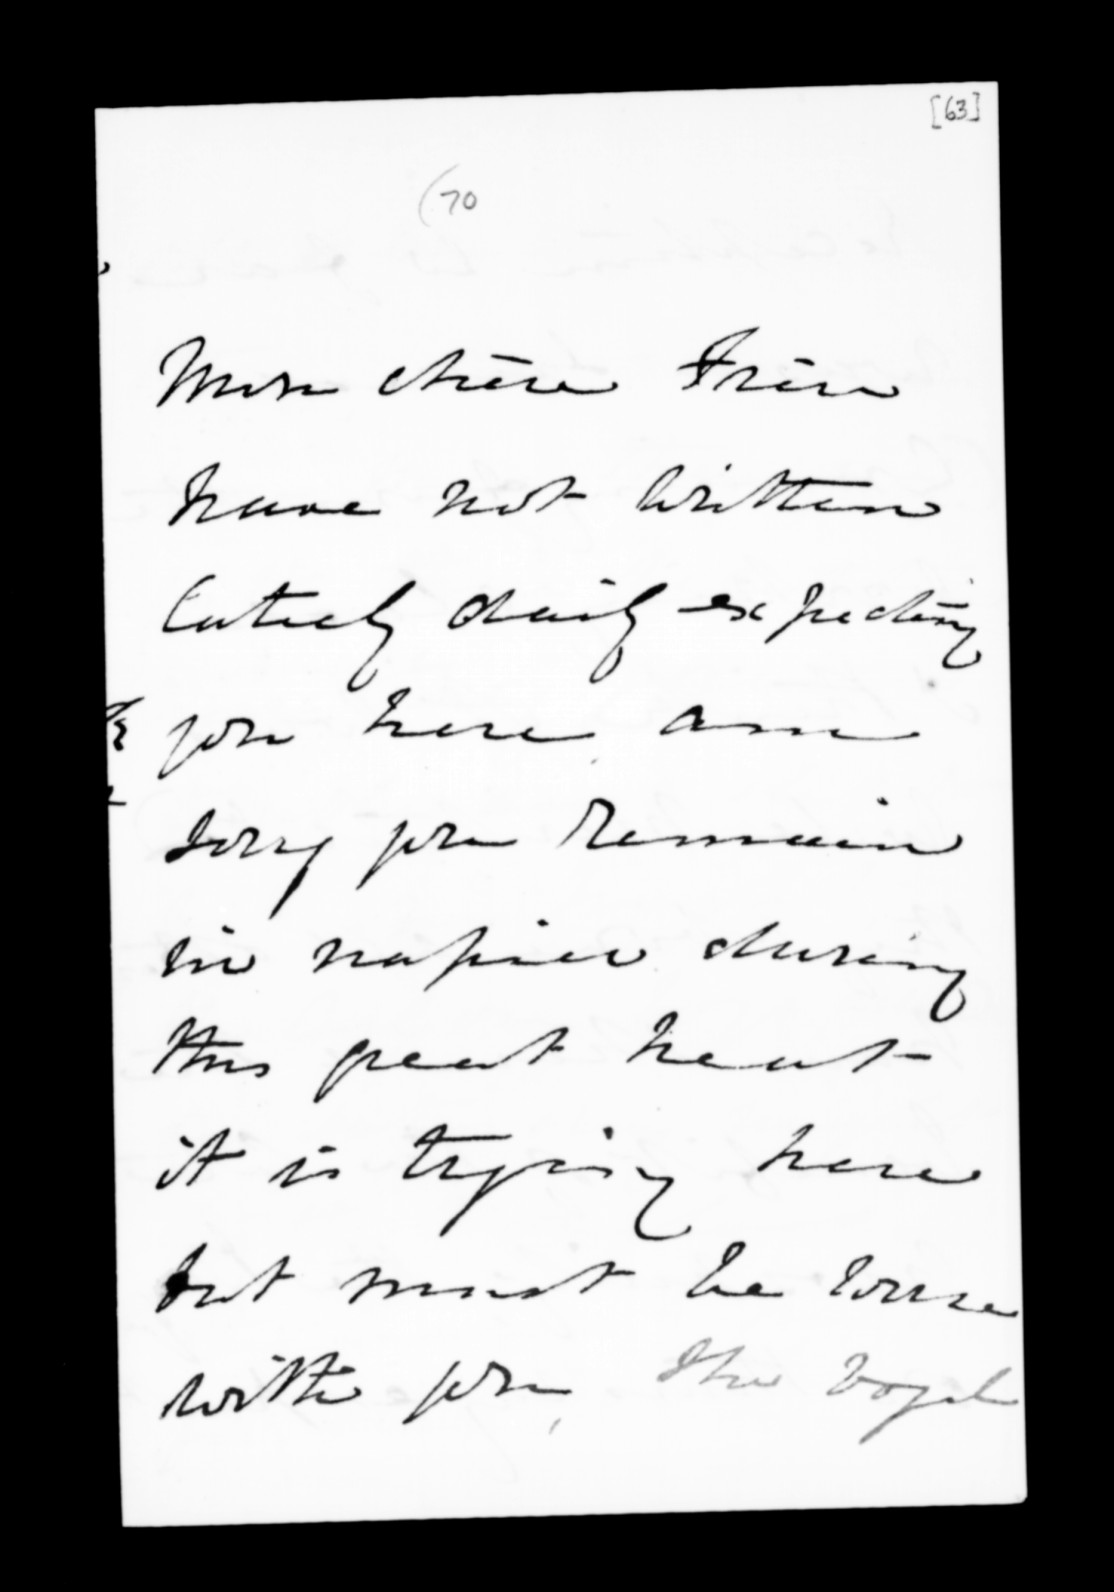 [63]
(70
Mon chère Frère
have not written
lately daily expecting
you here, am
sorry you remain
in napier during
this great heat
it is trying here
but must be worse
with you, The Vogel